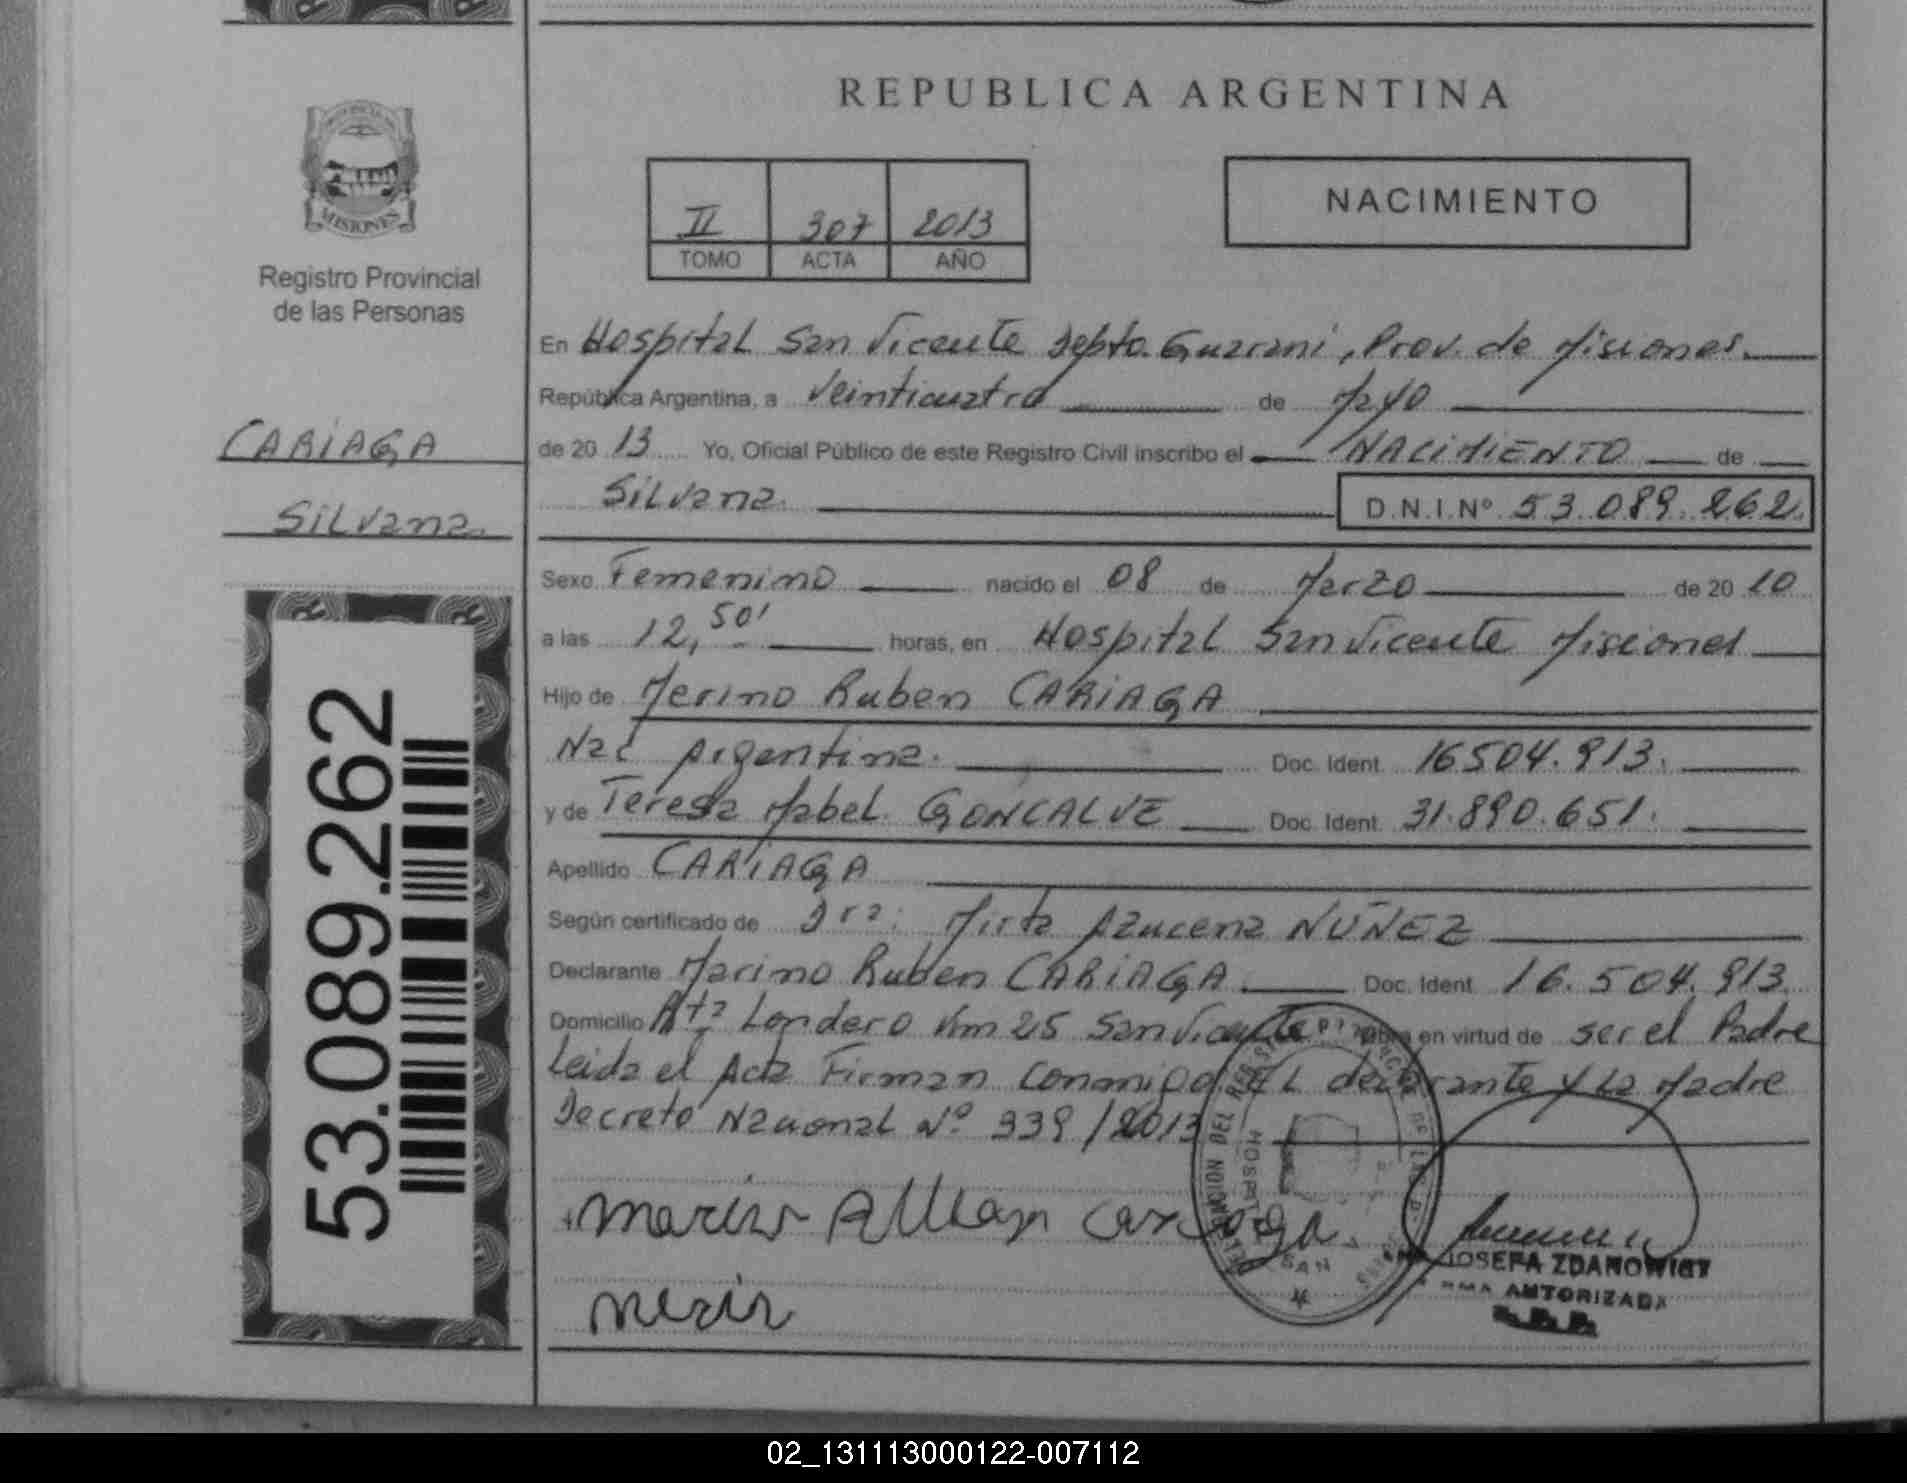 REPUBLICA ARGENTINA
MISIONES
Registro Provincial
de las Personas
II 307 2013
TOMO ACTA AÑO
NACIMIENTO
CARIAGA
Silvana.
53.089.262
En Hospital San Vicente Depto. Guarani, Prov. de Misiones.
República Argentina, a Veinticuatro de Mayo
de 20 13 Yo, Oficial Público de este Registro Civil inscribo el NACIMIENTO de
Silvana. D.N.I.Nº 53.089.262.
Sexo Femenino nacido el 08 de Marzo de 20 10
a las 12,50' horas, en Hospital San Vicente Misiones
Hijo de Merino Ruben CARIAGA
Nac Argentina. Doc. Ident. 16504.913.
y de Teresa Mabel. GONCALVE Doc. Ident. 31.890.651.
Apellido CARIAGA
Según certificado de Dra: Mirta Azucena NUÑEZ
Declarante Marino Ruben CARIAGA. Doc. Ident. 16.504.913.
Domicilio Londero Km 25 San Vicente en virtud de ser el Padre
Leida el Acta Firman Conmigo EL declarante y La Madre
Decreto Nacional Nº 339/2013
JOSEFA ZDANOWICZ
FIRMA AUTORIZADA
02_131113000122-007112